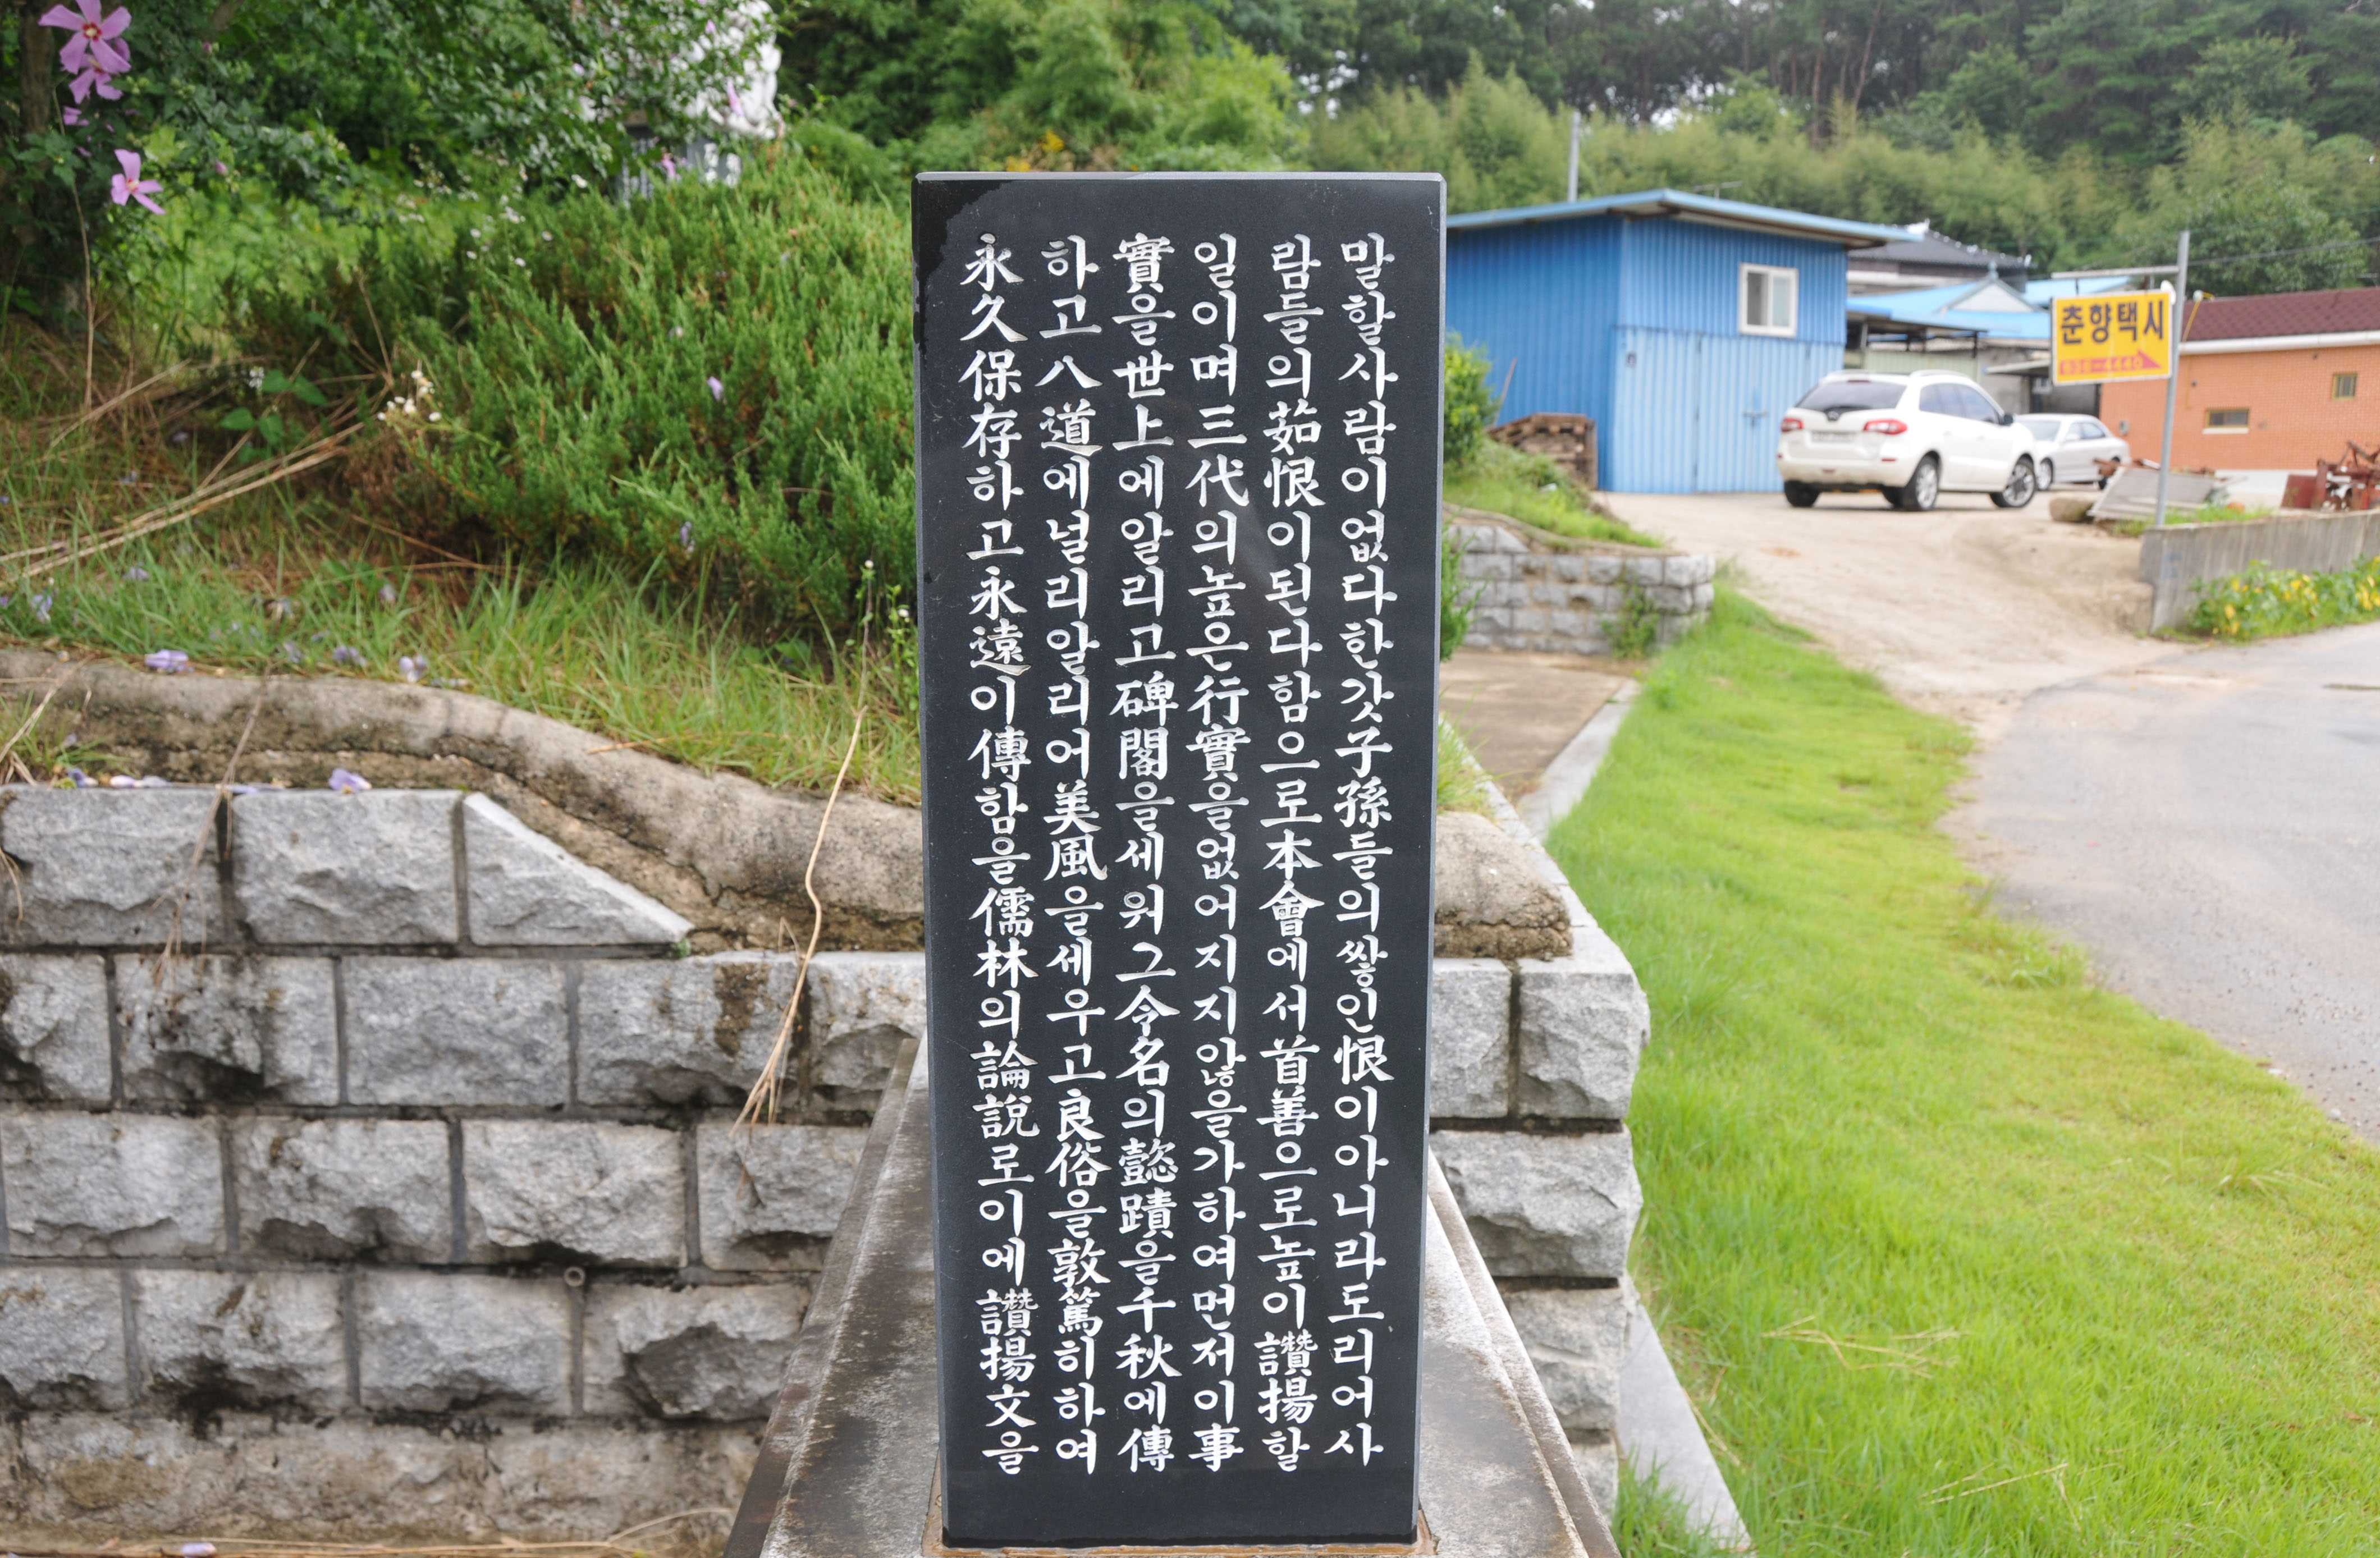 말할사람이없다한갓子孫들의쌓인恨이아니라도리어사
람들의茹恨이된다함으로本會에서首善으로높이讚揚할
일이며三代의높은行實을없어지지않을가하여먼저이事
實을世上에알리고碑閣을세워그令名의懿蹟을千秋에傳
하고八道에널리알리어美風을세우고良俗을敦篤히하여
永久保存하고永遠이傳함을儒林의論說로이에讚揚文을
춘향택시
636-4440